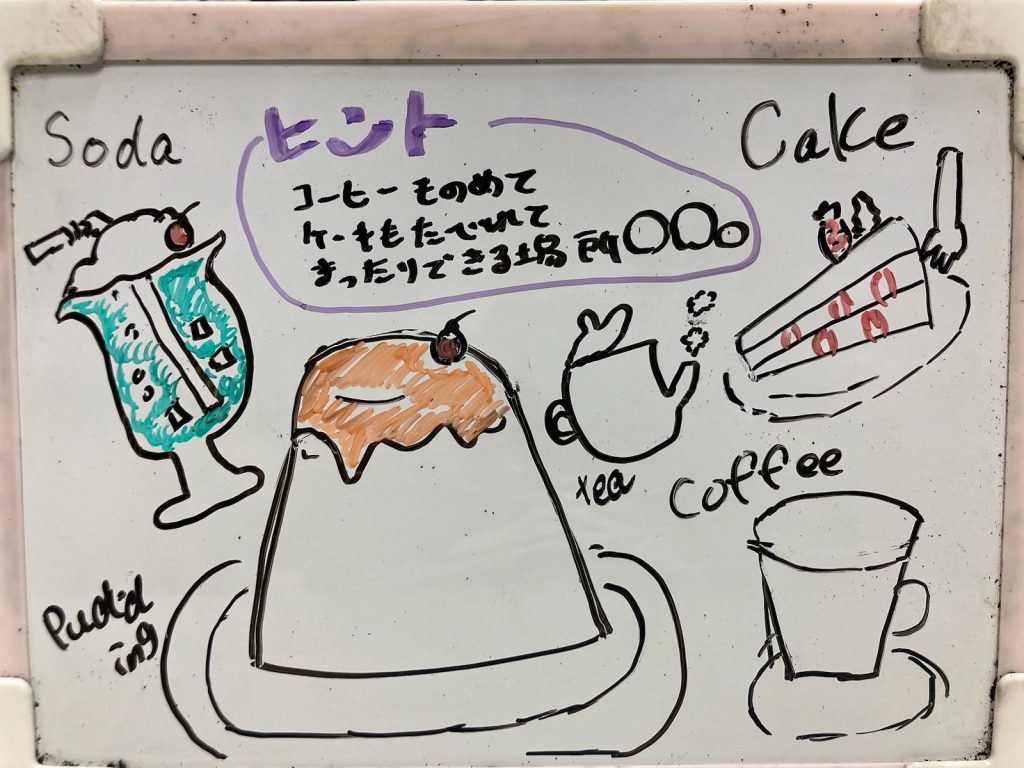 Soda
ヒント
コーヒーものめて
ケーキもたべれて
まったりできる場所○○○
Cake
tea
Coffee
Pudd
ing